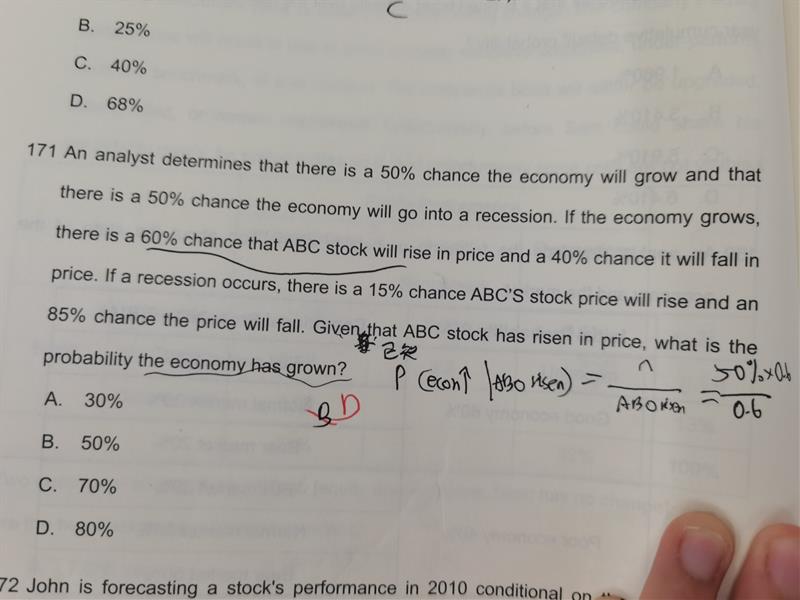 C
B. 25%
C. 40%
D. 68%
171 An analyst determines that there is a 50% chance the economy will grow and that
there is a 50% chance the economy will go into a recession. If the economy grows,
there is a 60% chance that ABC stock will rise in price and a 40% chance it will fall in
price. If a recession occurs, there is a 15% chance ABC'S stock price will rise and an
85% chance the price will fall. Given that ABC stock has risen in price, what is the
已知
probability the economy has grown?
P (econ↑ | ABO risen) = ∩ / ABO risen = 50% × 0.6 / 0.6
A. 30%
B D
B. 50%
C. 70%
D. 80%
72 John is forecasting a stock's performance in 2010 conditional on